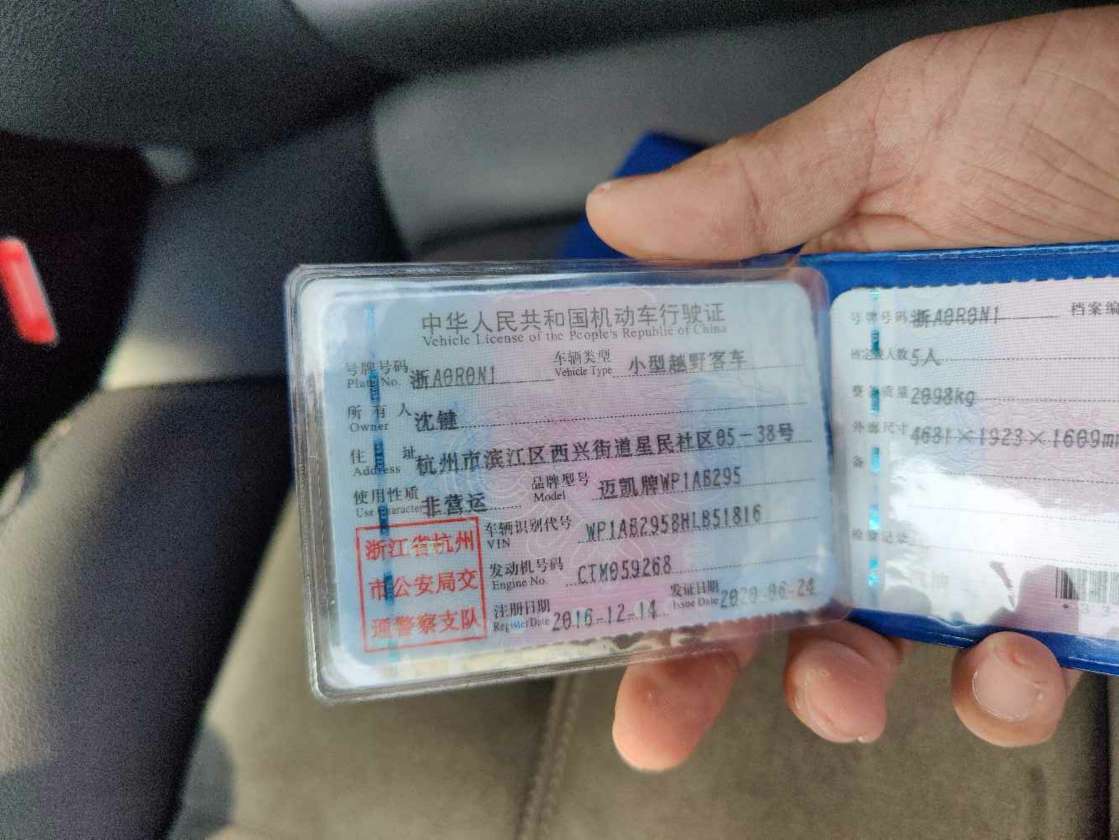 中华人民共和国机动车行驶证
Vehicle License of the People's Republic of China
号牌号码 浙A0R0N1 车辆类型 小型越野客车
Plate No. Vehicle Type
所有人 沈键
Owner
住址 杭州市滨江区西兴街道星民社区05-38号
Address
使用性质 非营运 品牌型号 迈凯牌WP1AB295
Use Character Model
浙江省杭州
市公安局交
通警察支队
车辆识别代号 WP1AB295BHLB51816
VIN
发动机号码 CTM059268
Engine No.
注册日期 2016-12-14 发证日期 2020-06-24
Register Date Issue Date
号牌号码 浙A0R0N1 档案编
核定载人数 5人
整备质量 2098kg
外廓尺寸 4681×1923×1609m
备
检验记录